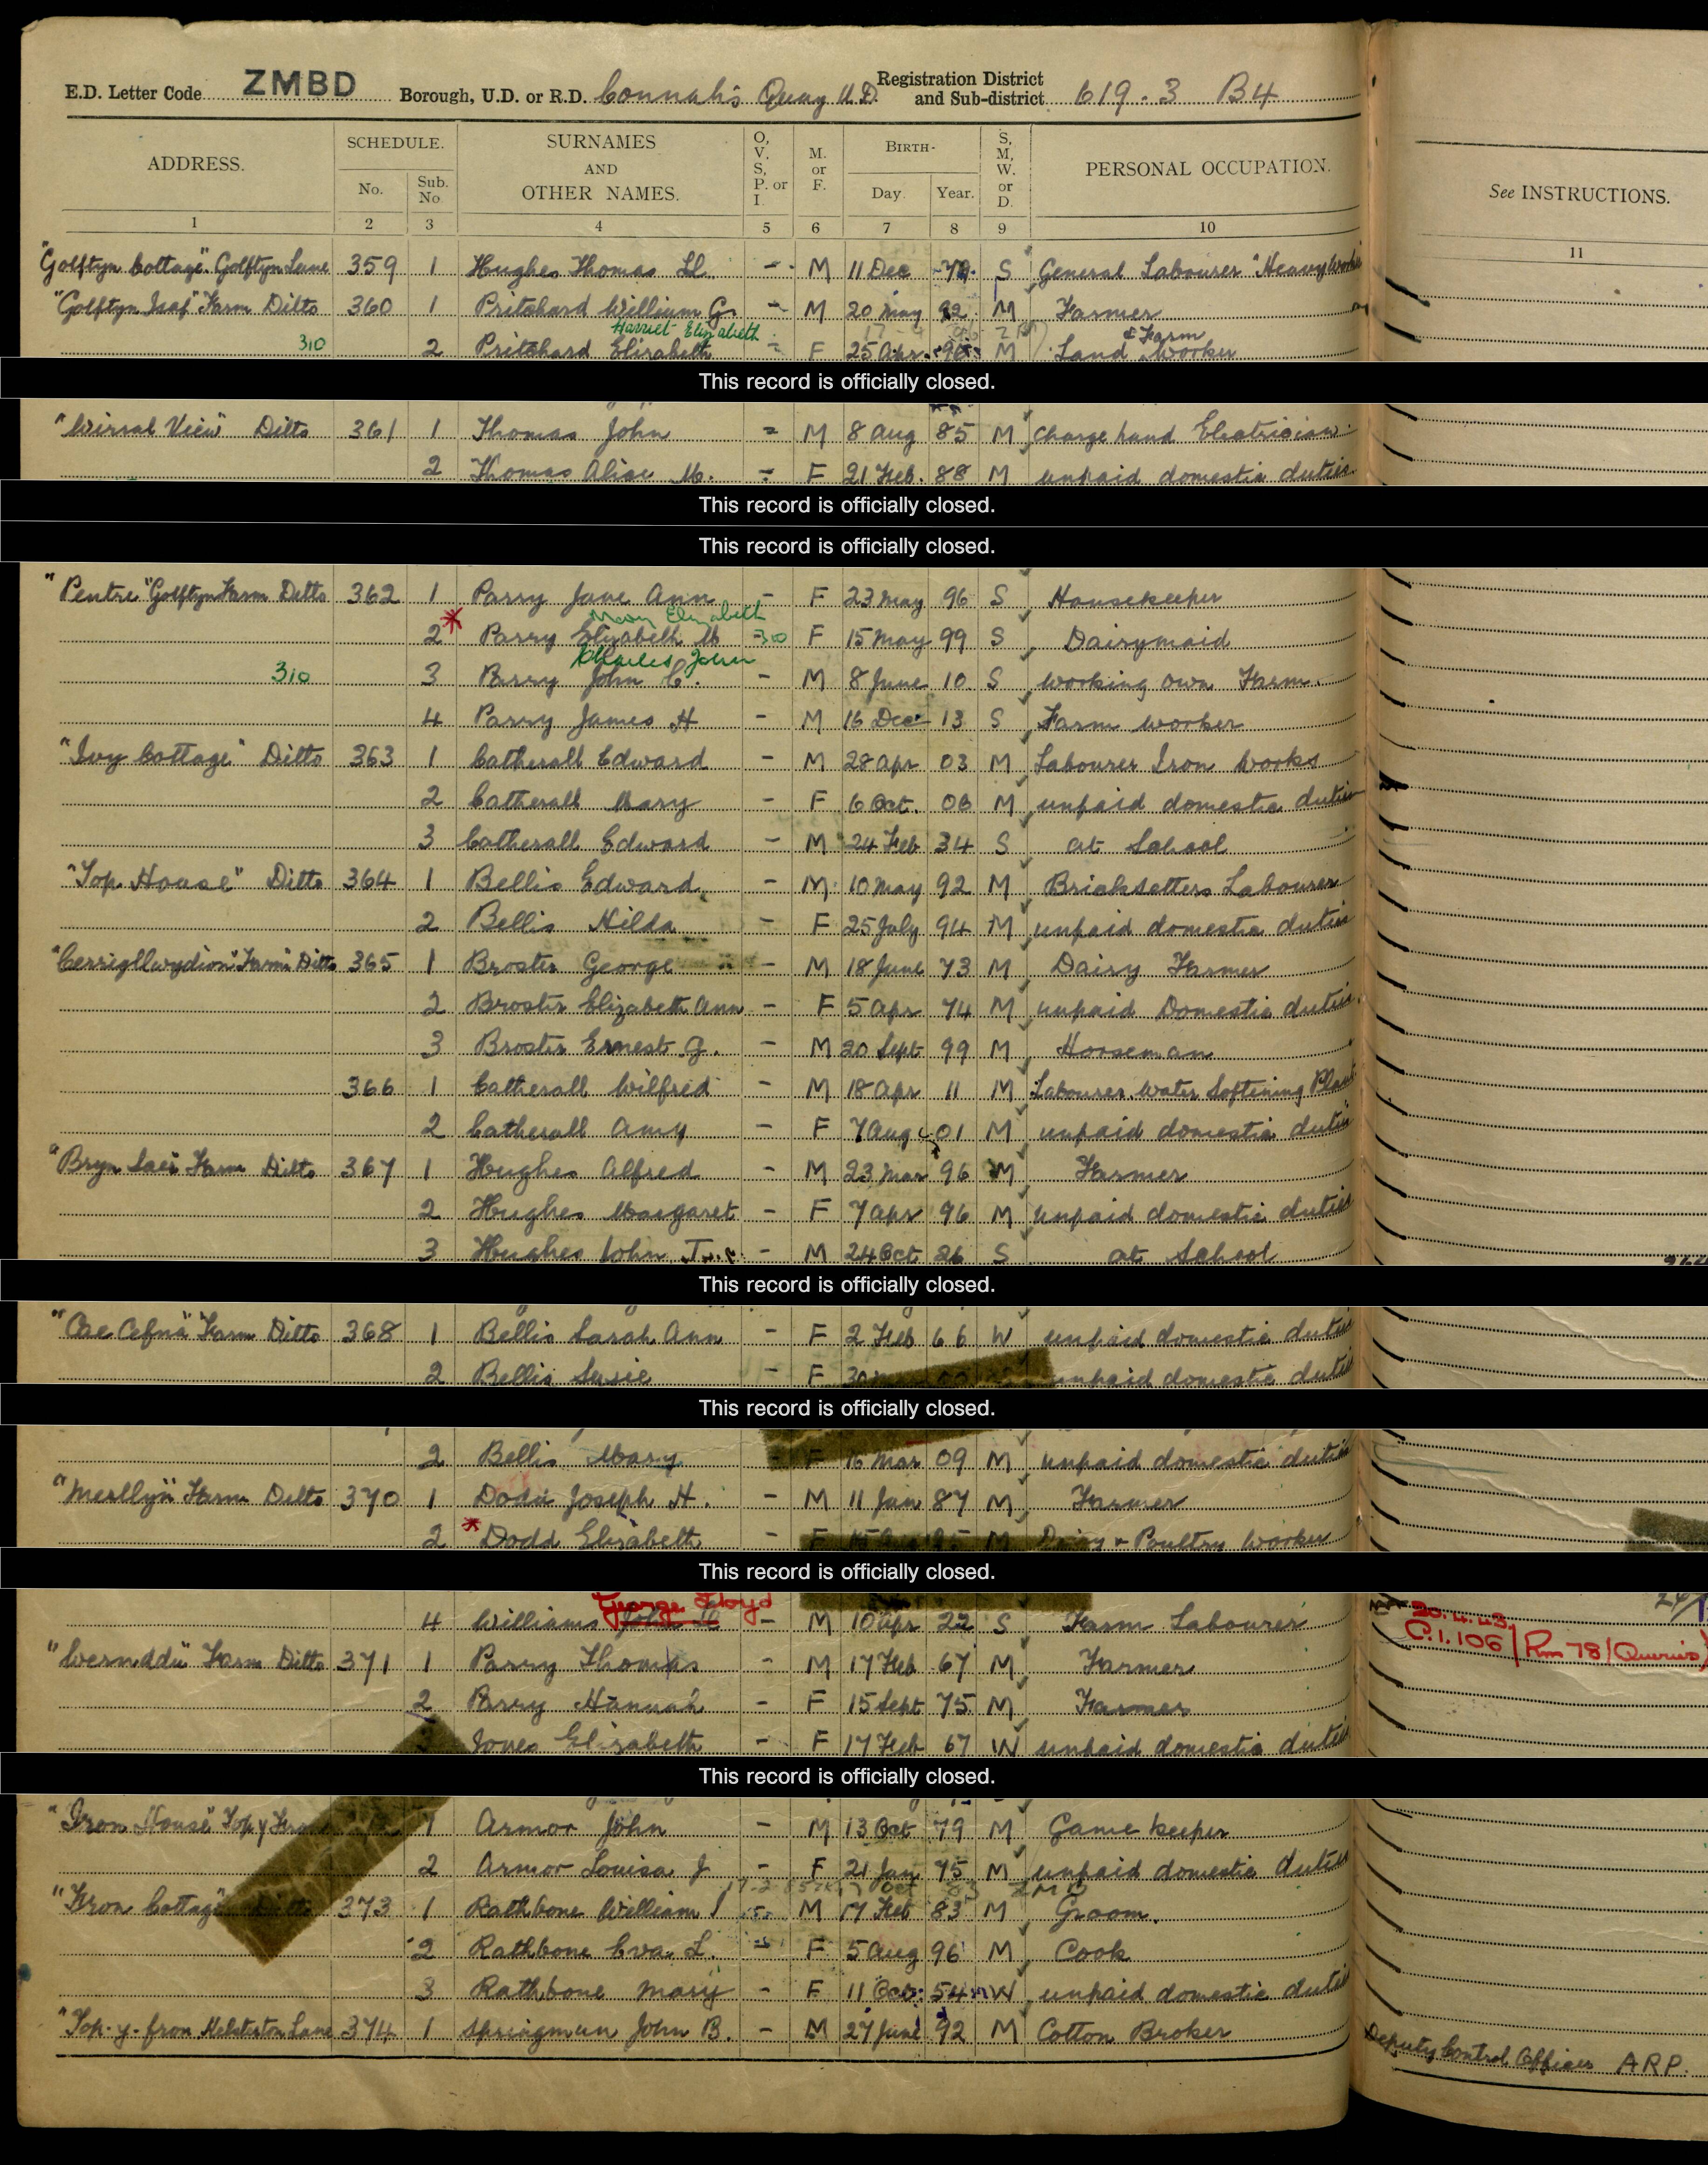 E.D. Letter Code ZMBD Borough, U.D. or R.D. Connah's Quay U.D. Registration District and Sub-district 619.3 B4
ADDRESS. SCHEDULE. No. Sub. No. SURNAMES AND OTHER NAMES. O, V, S, P. or I. M. or F. BIRTH- Day. Year. S, M, W. or D. PERSONAL OCCUPATION. See INSTRUCTIONS.
1 2 3 4 5 6 7 8 9 10 11
"Golftyn Cottage" Golftyn Lane 359 1 Hughes Thomas Ll. - M 11 Dec 79 S General Labourer "Heavy Worker
"Golftyn Isaf" Farm Ditto 360 1 Pritchard William G. - M 20 May 92 M Farmer
Harriet Elizabeth
310 2 Pritchard Elizabeth - F 25 Apr. 96 M Land & Farm Worker
This record is officially closed.
"Wirral View" Ditto 361 1 Thomas John - M 8 Aug 85 M Chargehand Electrician
2 Thomas Alice M. - F 21 Feb. 88 M unpaid domestic duties
This record is officially closed.
This record is officially closed.
"Pentre" Golftyn Farm Ditto 362 1 Parry Jane Ann - F 23 May 96 S Housekeeper
Mary Elizabeth
2 * Parry Elizabeth M - 310 F 15 May 99 S Dairymaid
Charles John
310 3 Parry John C. - M 8 June 10 S working own Farm.
4 Parry James H - M 16 Dec 13 S Farm worker
"Ivy Cottage" Ditto 363 1 Catherall Edward - M 28 Apr 03 M Labourer Iron Works
2 Catherall Mary - F 6 Oct. 06 M unpaid domestic duties
3 Catherall Edward - M 24 Feb 34 S at School
"Top House" Ditto 364 1 Bellis Edward - M 10 May 92 M Bricksetters Labourer
2 Bellis Hilda - F 25 July 94 M unpaid domestic duties
"Cerrigllwydion" Farm" Ditto 365 1 Broster George - M 18 June 73 M Dairy Farmer
2 Broster Elizabeth Ann - F 5 Apr 74 M unpaid Domestic duties
3 Broster Ernest G. - M 20 Sept 99 M Horseman
366 1 Catherall Wilfred - M 18 Apr 11 M Labourer Water Softening Plant
2 Catherall Amy - F 7 Aug 01 M unpaid domestic duties
"Bryn Farm Ditto 367 1 Hughes Alfred - M 23 Mar 96 M Farmer
2 Hughes Margaret - F 7 Apr 96 M unpaid domestic duties
3 Hughes John - M 24 Oct 26 S at School
This record is officially closed.
"Cae Cefna" Farm Ditto 368 1 Bellis Sarah Ann - F 2 Feb 66 W unpaid domestic duties
2 Bellis Susie - F 30 unpaid domestic duties
This record is officially closed.
2 Bellis Mary - F 16 Mar 09 M unpaid domestic duties
"Merllyn" Farm Ditto 370 1 Dodd Joseph H. - M 11 Jan 87 M Farmer
2 * Dodd Elizabeth - F M Dairy & Poultry Worker
This record is officially closed.
George Lloyd
4 Williams - M 10 Apr 22 S Farm Labourer 20.4.43.
C.1.106 Rm 78 (Queries)
"Wernddu" Farm Ditto 371 1 Parry Thomas - M 17 Feb 67 M Farmer
2 Parry Hannah - F 15 Sept 75 M Farmer
Jones Elizabeth - F 17 Feb 67 W unpaid domestic duties
This record is officially closed.
"Iron House" Top y 1 Armor John - M 13 Oct 79 M Game keeper
2 Armor Louisa J - F 21 Jan 75 M unpaid domestic duties
"Fron Cottage" Ditto 373 1 Rathbone William J - M 17 Feb 83 M Groom.
2 Rathbone Eva L. - F 5 Aug 96 M Cook
3 Rathbone Mary - F 11 Oct 54 W unpaid domestic duties
"Top-y-fron Kelsterton Lane 374 1 Springmun John B. - M 27 June 92 M Cotton Broker Deputy Control Officer ARP.